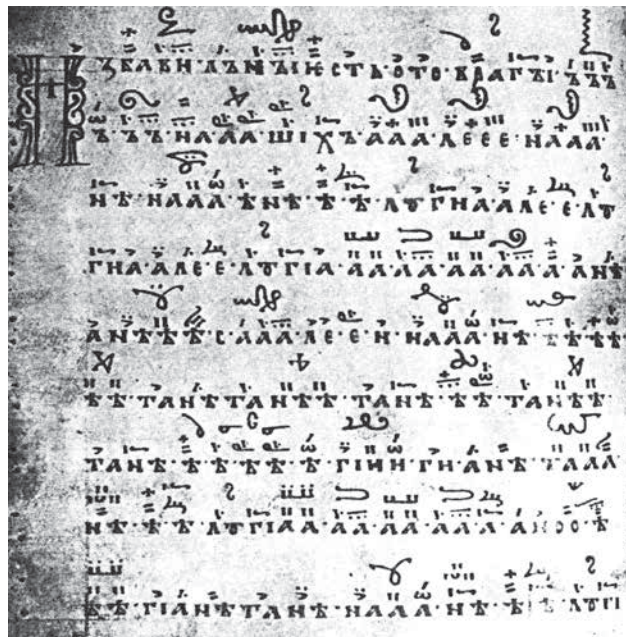 И З·БАВИ·ЛЪ·НЪІ·ѤСТЬ·ОТО·ВРАГЪІ·ЪЪЪ
Ъ·ЪЪ·НАЛА·ШІХЪ·ААА·ЛЕЕЕ·НАЛА·
НѢ·НАЛА·НѢ·Ѣ·Ѣ·ЛꙊГНА·АЛЕ·Е·ЛꙊ
ГНА·АЛЕЕЛꙊГІА·АА·АА·АА·ААА·АНѢ
АНѢѢѢ·С·АААЛЕЕ·Н·НАЛА·НѢ·ѢѢѢѢ
ѢѢ·ТАНѢТАНѢѢ·ТАНѢ·ѢѢ·ТАНѢѢ
ТАНѢ·ѢѢѢѢѢ·ГІНН·ГНАНѢ·ТАЛА
НѢ·Ѣ·Ѣ·ЛꙊГІАА·АА·АА·АА·А·АНОО·Ѣ
ѢѢ·ГІАНѢТАНѢ·НАЛА·НѢ·Ѣ·Ѣ·ЛꙊГІ